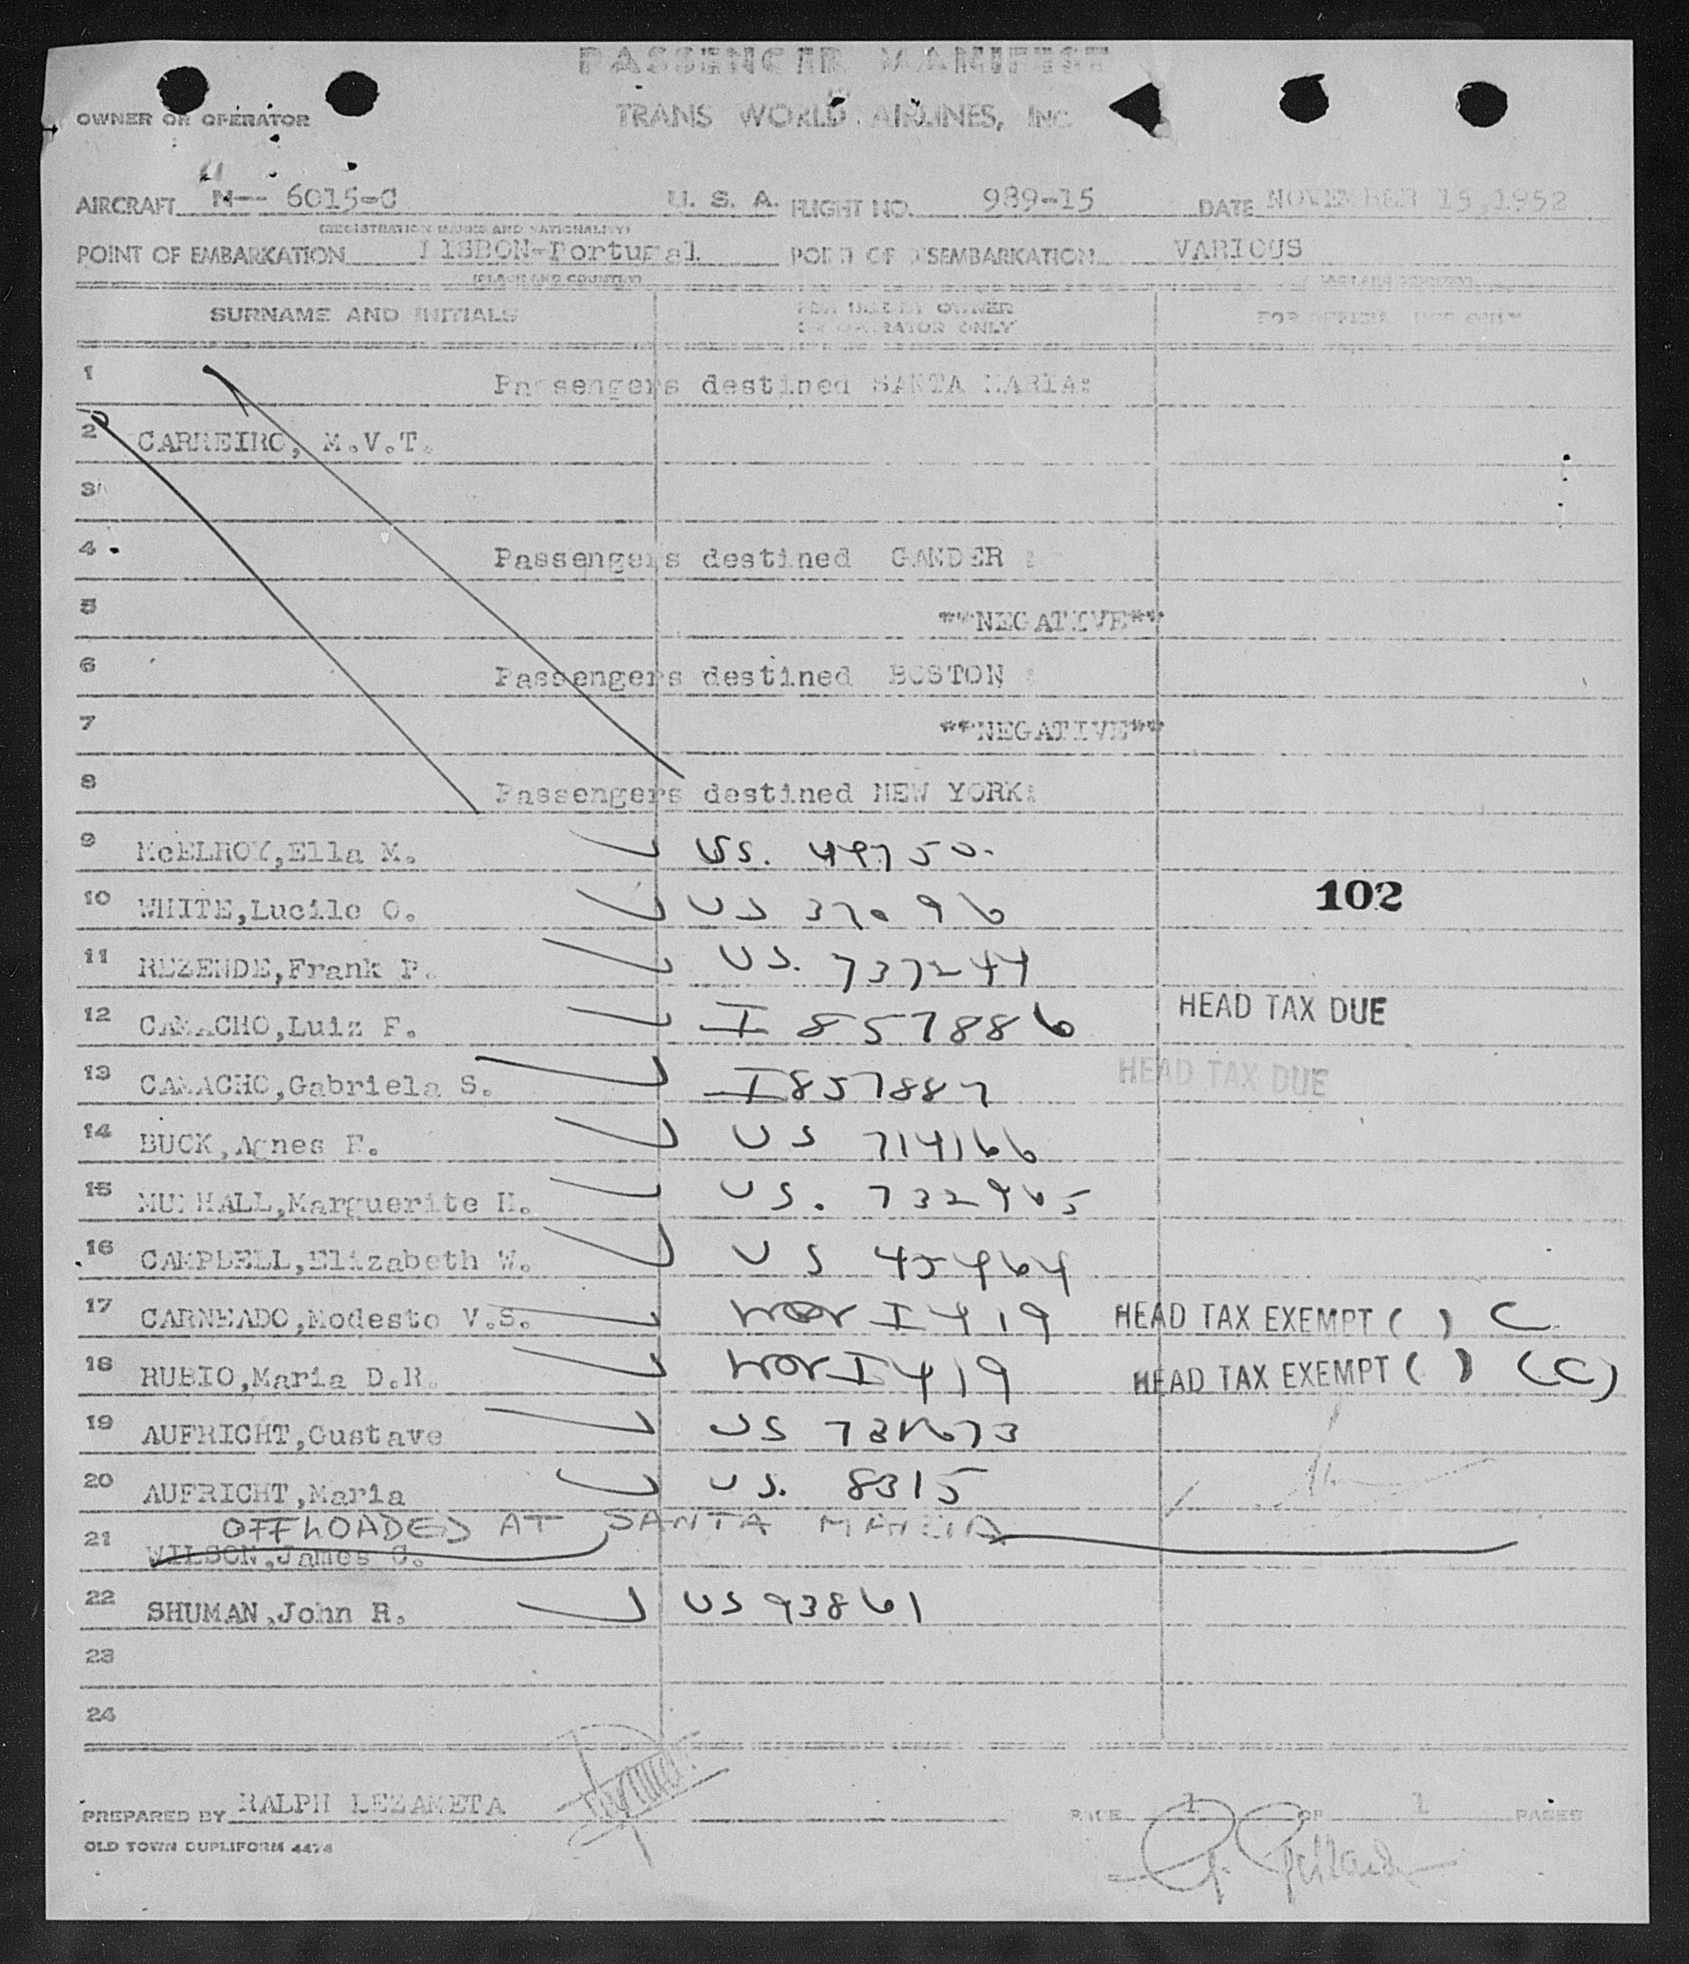 PASSENGER MANIFEST
OWNER OR OPERATOR TRANS WORLD AIRLINES, INC.
AIRCRAFT N-- 6015-C U. S. A. FLIGHT NO. 989-15 DATE NOVEMBER 15,1952
(REGISTRATION MARKS AND NATIONALITY)
POINT OF EMBARKATION LISBON-Portugal POINT OF DISEMBARKATION VARIOUS
(PLACE AND COUNTRY) (PLACE AND COUNTRY)
SURNAME AND INITIALS FOR USE BY OWNER OR OPERATOR ONLY FOR OFFICIAL USE ONLY
1 Passengers destined SANTA MARIA:
2 CARREIRO, M.V.T.
3
4 Passengers destined GANDER :
5 **NEGATIVE**
6 Passengers destined BOSTON :
7 **NEGATIVE**
8 Passengers destined NEW YORK:
9 McELROY,Ella M. US. 49750.
10 WHITE,Lucile O. US 37096 102
11 REZENDE,Frank P. US. 737244
12 CAMACHO,Luiz F. I 857886 HEAD TAX DUE
13 CAMACHO,Gabriela S. I 857887 HEAD TAX DUE
14 BUCK,Agnes F. US 714166
15 MULHALL,Marguerite H. US. 732965
16 CAMPBELL,Elizabeth W. US
17 CARNEADO,Modesto V.S. I 419 HEAD TAX EXEMPT ( ) C
18 RUBIO,Maria D.R. I 419 HEAD TAX EXEMPT ( ) (C)
19 AUFRICHT,Gustave US
20 AUFRICHT,Maria US. 8315
OFFLOADED AT SANTA MARIA
21 WILSON,James C.
22 SHUMAN,John R. US 93861
23
24
PREPARED BY RALPH LEZAMETA PAGE 1 OF 1 PAGES
OLD TOWN DUPLIFORM 4474